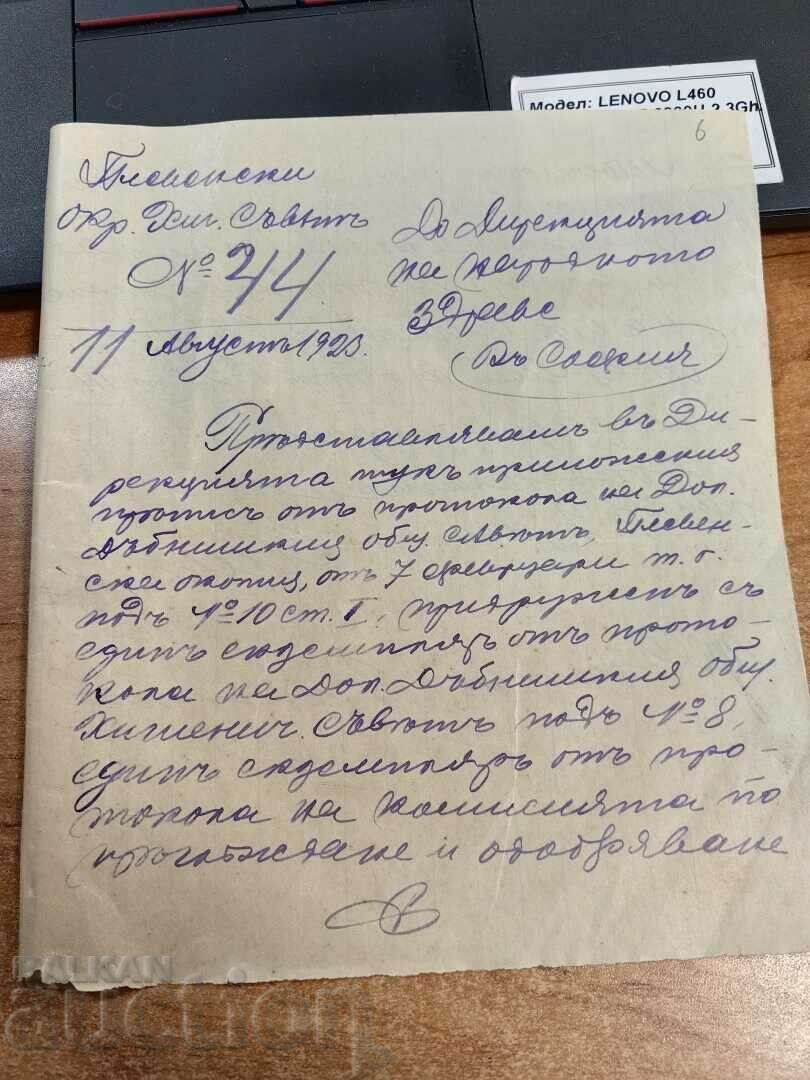 Модел: LENOVO L460
2.3Gh
6
Плевенски
окр. Хиг. Съветъ
№ 244
11 Августъ 1923.
До Дирекцията
на народното
Здраве
Въ София
Предоставлявамъ въ Ди-
рекцията тукъ приложения
препис отъ протокола на Дол.
Дъбнишкия общ. Съветъ, Плевен-
ска околия, отъ 7 февруари т. г.
подъ № 10 ст. I, придруженъ съ
единъ екземпляръ отъ прото-
кола на Дол. Дъбнишкия общ.
Хигиенич. Съветъ подъ № 8,
единъ екземпляръ отъ про-
токола на комисията по
преглеждане и одобряване
BALKAN
auction